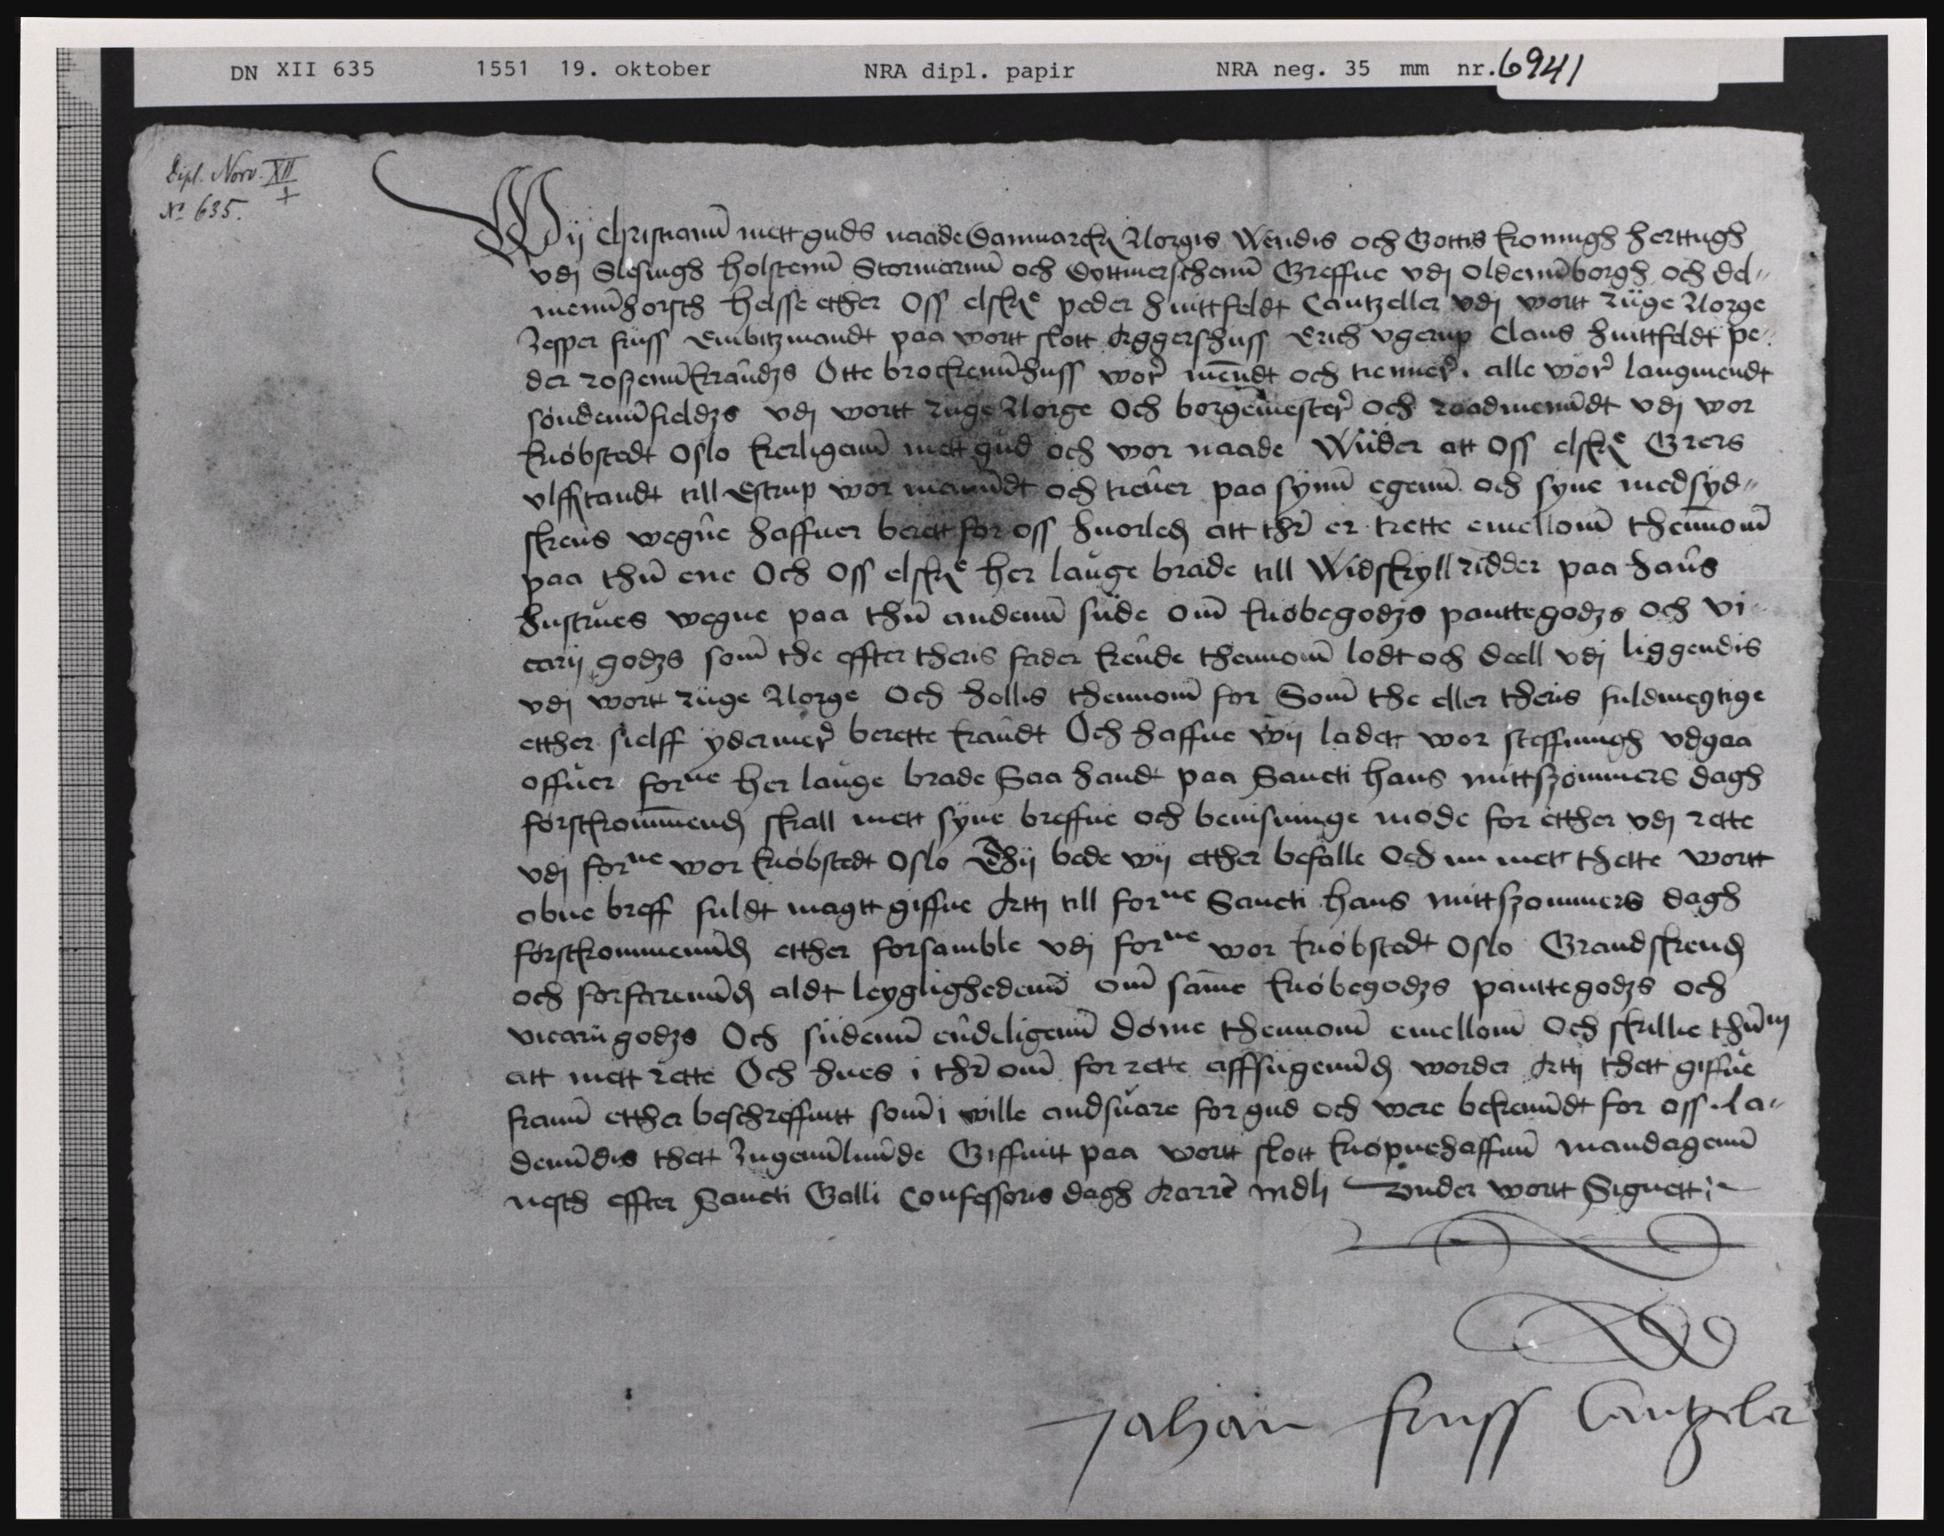 DN XII 635 1551 19. oktober NRA dipl. papir NRA neg. 35 mm nr. 6941
Dipl. Norv. XII
No 635. +
Wij Christiann mett guds naade Danmarckᷓ Norgis Wendis och Gottis konningh herttugh
vdj Slesuigh holstenn Stormarnn och dyttmerschenn Greffue vdj oldennborgh och del„
mennhorsth helsse ether Oss elskᷓe peder huittfeldt Cantzeller vdj wortt rüge Norge
Jesper friiss embitzmandt paa wortt slott Aggershuss Erich vgerup Claus huittfeldt pe„
der roszennkrandzs Otte brockennhuss worꝛ menndt och tiennerꝛ. alle worꝛ laugmendt
søndennfieldzs vdj wortt rüge Norge Och borgemesterꝛ och raadmenndt vdj wor
kiøbstedt Oslo kerligenn mett gud och wor naade Wüder att Oss elskᷓe Grers
vlffstandt till Estrup wor menndt och tiener paa synn egenn och syne medsyd„
skens wegne haffuer berett for oss huorledꝭ att thr er trette emellom thennom
paa thn ene Och Oss elskᷓe her lauge brade till Widskyll ridder paa hans
hustrues wegne paa thn andenn süde om kiøbegodzs panttegodzs och vi„
carij godzs som the effter theris fader kunde thennom lodt och deell vdj liggendis
vdj wortt rüge Norge Och hollis thennom for Som the eller theris fuldmegtige
etther sielff ydermerꝛ berette kandt Och haffue wij ladett wor steffningh vdgaa
offuer forne her lauge brade Saa handt paa Sancti hans mittszommers dagh
førstkommendꝭ skall mett syne breffue och beuisninge møde for etther vdj rette
vdj forne wor kiøbstedt Oslo Thij bede wij etther befalle Och nu mett thette wortt
obne breff fuldt magtt giffue Attj till forne Sancti hans mittszommers dagh
førstkommenndꝭ etther forsamble vdj forne wor kiøbstedt Oslo Grandskendꝭ
och forfarenndꝭ aldt leyglighedenn om samme kiøbegodzs panttegodzs och
vicarij godzs Och südenn endeligenn dømme thennom emellom Och skillie thnm
att mett rette Och hues i thr om for rette affsügenndꝭ worder Attj thett giffue
frann etther beschreffuitt som i wille andsuare for gud och were bekenndt for oss. la„
denndis thett Jngennlunde Giffuitt paa wortt slott kiøpnehaffnn mandagenn
nesth effter Sancti Galli Confessoris dagh Aarre mdlj ~ Vnder wortt Signett
Johan friiss Cantzeler